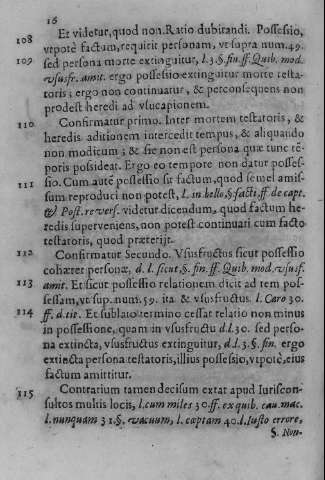 16
108 Et videtur, quod non. Ratio dubitandi. Possessio,
vtpotè factum, requirit personam, vt supra num. 49.
109 sed persona morte extinguitur, l. 3. §. fin. ff. Quib. mod.
vsusfr. amit. ergo possessio extinguitur morte testa-
toris; ergo non continuatur, & perconsequens non
prodest heredi ad vsucapionem.
110 Confirmatur primo. Inter mortem testatoris, &
heredis aditionem intercedit tempus, & aliquando
non modicum; & sic non est persona quæ tunc tē-
poris possideat. Ergo eo tempore non datur posses-
sio. Cum autē possessio sit factum, quod semel amis-
111 sum reproduci non potest, l. in bello, §. facti, ff. de capt.
& Post. revers. videtur dicendum, quod factum he-
redis superveniens, non potest continuari cum facto
testatoris, quod præterijt.
112 Confirmatur Secundo. Vsusfructus sicut possessio
cohæret personæ, d. l. sicut, §. fin. ff. Quib. mod. vsusf.
113 amit. Et sicut possessio relationem dicit ad rem pos-
sessam, vt sup. num. 59. ita & vsusfructus. l. Caro 30.
114 ff. d. tit. Et sublato termino cessat relatio non minus
in possessione, quam in vsusfructu d. l. 30. sed perso-
na extincta, vsusfructus extinguitur, d. l. 3. §. fin. ergo
extincta persona testatoris, illius possessio, vtpotè, eius
factum amittitur.
115 Contrarium tamen decisum extat apud Iuriscon-
sultos multis locis, l. cum miles 30. ff. ex quib. cau. mac.
l. nunquam 31. §. vacuum, l. cœptam 40. l. Iusto errore,
§. Non-